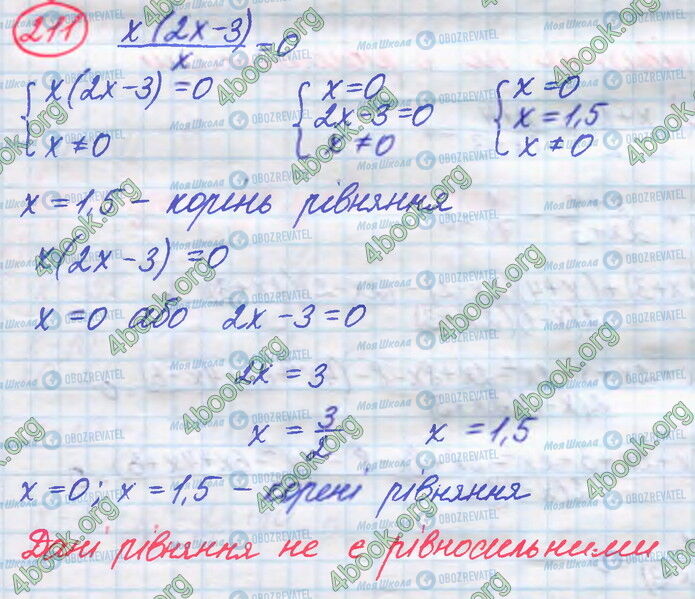 211 x(2x-3)/x = 0
{ x(2x-3) = 0 { x = 0 { x = 0
2x-3 = 0 x = 1,5
x ≠ 0 x ≠ 0 x ≠ 0
x = 1,5 - корінь рівняння
x(2x-3) = 0
x = 0 або 2x-3 = 0
2x = 3
x = 3/2 x = 1,5
x = 0; x = 1,5 - корені рівняння
Дані рівняння не є рівносильними
4book.org
Моя Школа
OBOZREVATEL